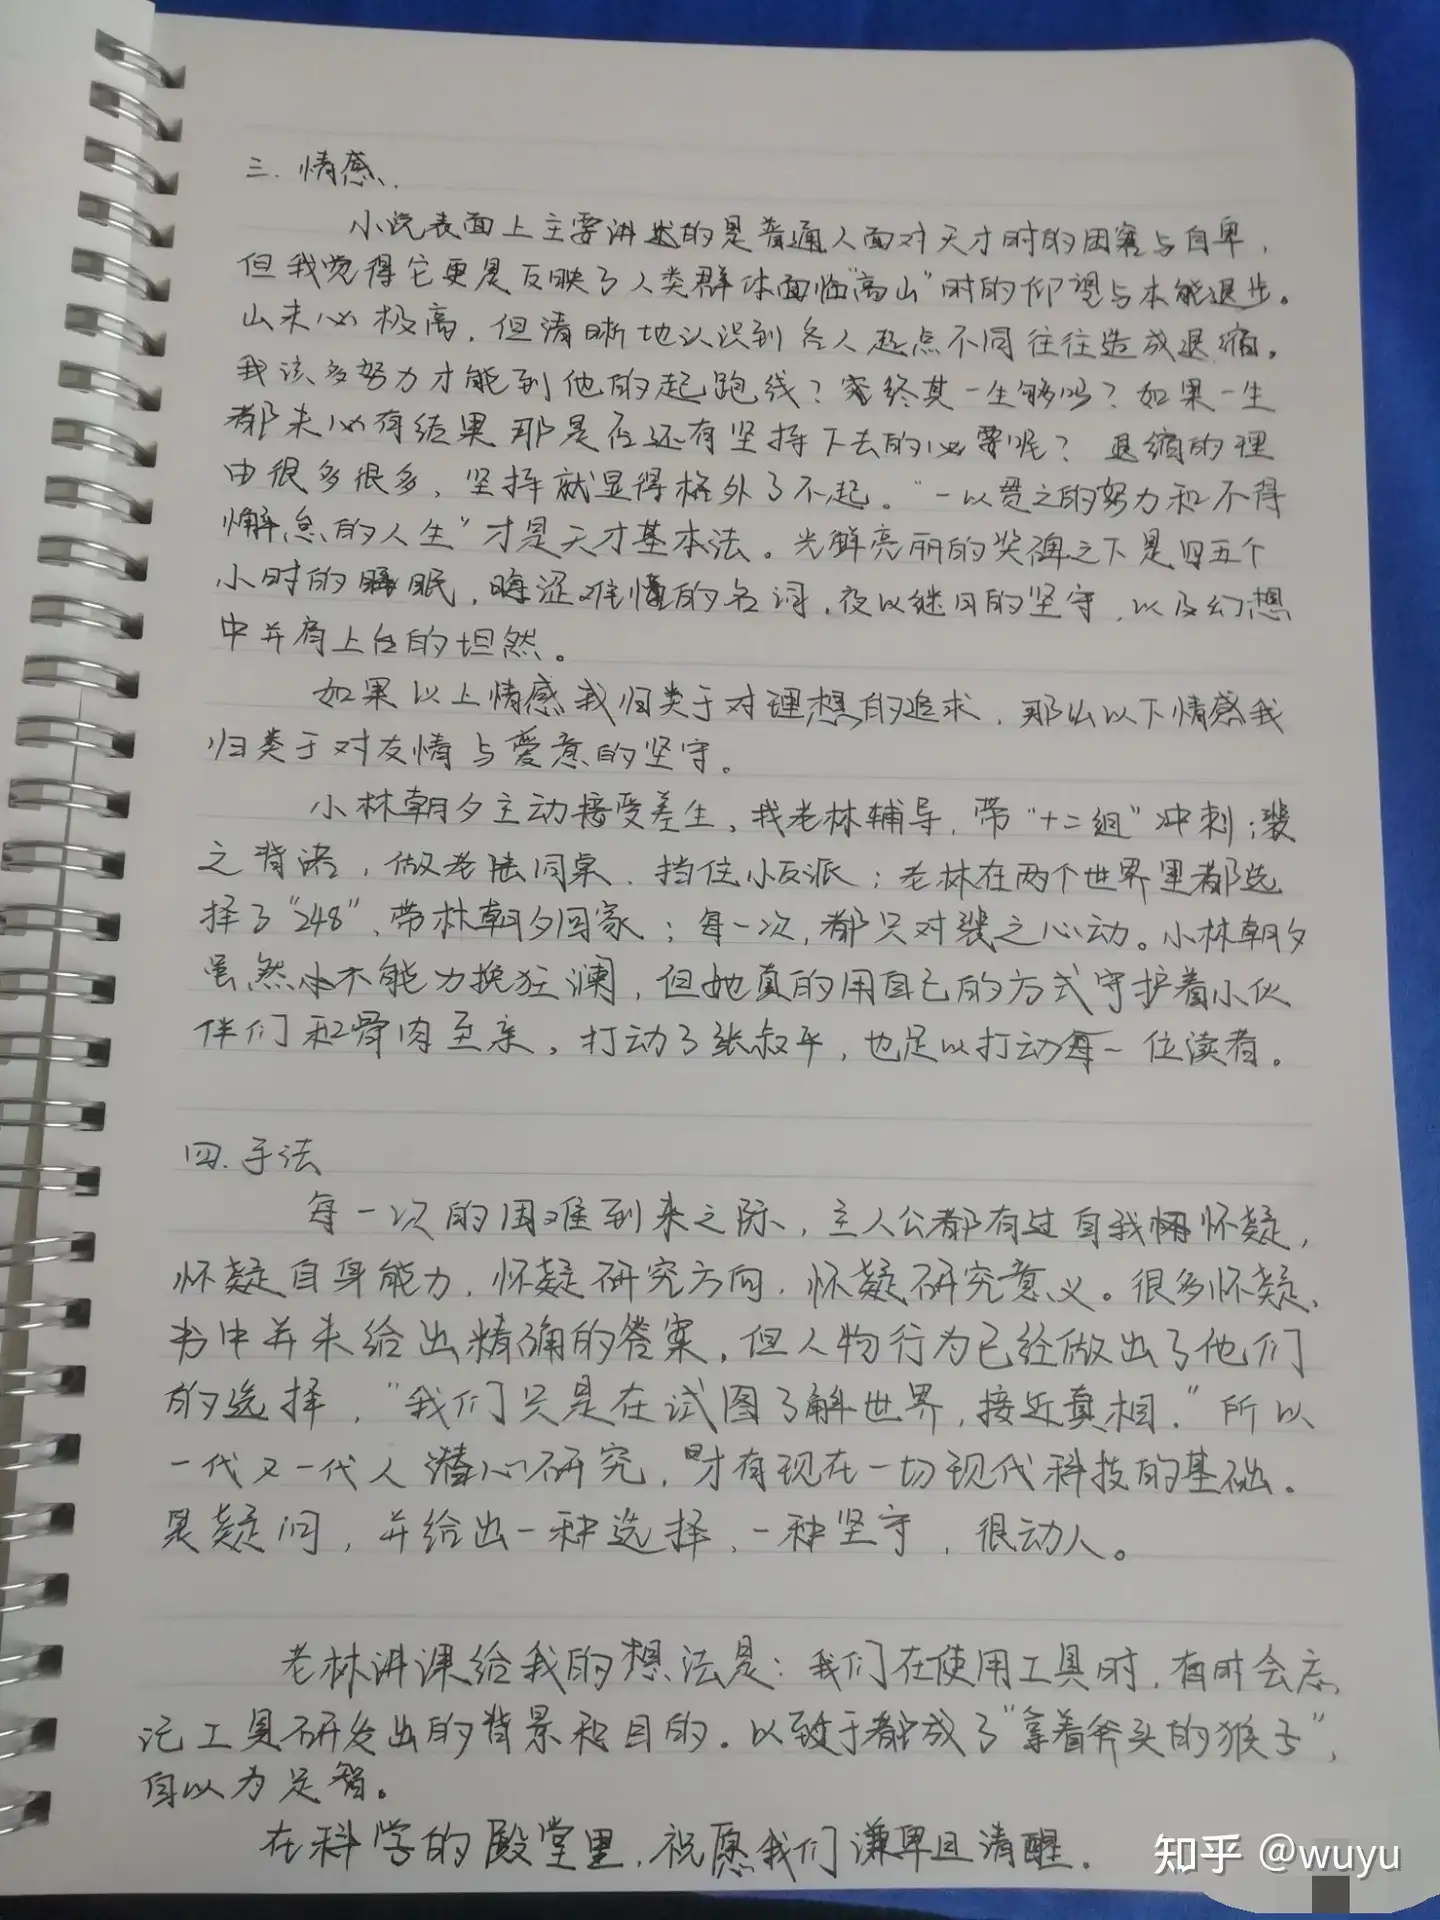 三.情感.
小说表面上主要讲述的是普通人面对天才时的困窘与自卑,
但我觉得它更是反映了人类群体面临"高山"时的仰望与本能退步。
山未必极高,但清晰地认识到各人起点不同往往造成退缩。
我该多努力才能到他的起跑线?穷终其一生够吗?如果一生
都未必有结果那是否还有坚持下去的必要呢?退缩的理
由很多很多,坚持就显得格外了不起。"一以贯之的努力和不得
懈怠的人生"才是天才基本法。光鲜亮丽的奖牌之下是日五个
小时的睡眠,晦涩难懂的名词,夜以继日的坚守,以及幻想
中并肩上台的坦然。
如果以上情感我归类于对理想的追求,那么以下情感我
归类于对友情与爱意的坚守。
小林朝夕主动接受差生,找老林辅导,带"十二组"冲刺;裴
之背诺,做老陆同桌、挡住小反派;老林在两个世界里都选
择了"248"、带林朝夕回家;每一次,都只对裴之心动。小林朝夕
虽然不能力挽狂澜,但她真的用自己的方式守护着小伙
伴们和骨肉至亲,打动了张叔平,也足以打动每一位读者。
四.手法
每一次的困难到来之际,主人公都有过自我怀疑,
怀疑自身能力,怀疑研究方向,怀疑研究意义。很多怀疑,
书中并未给出精确的答案,但人物行为已经做出了他们
的选择,"我们只是在试图了解世界,接近真相."所以
一代又一代人潜心研究,才有现在一切现代科技的基础。
是疑问,并给出一种选择,一种坚守,很动人。
老林讲课给我的想法是:我们在使用工具时,有时会忘
记工具研发出的背景和目的.以致于都成了"拿着斧头的猴子",
自以为足智。
在科学的殿堂里,祝愿我们谦卑且清醒.
知乎 @wuyu